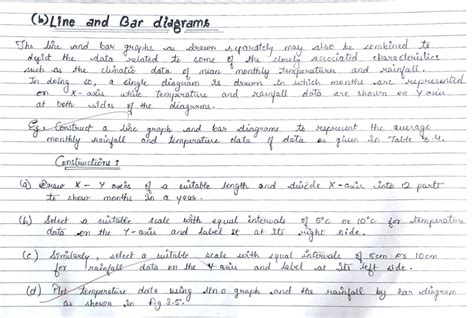 (b) Line and Bar diagrams
The line and bar graphs as drawn separately may also be combined to
depict the data related to some of the closely associated characteristics
such as the climatic data of mean monthly temperature and rainfall.
In doing so, a single diagram is drawn in which months are represented
on X-axis while temperature and rainfall data are shown on Y axis
at both sides of the diagrams.
Eg. Construct a line graph and bar diagrams to represent the average
monthly rainfall and temperature data of data as given in Table 3.4.
Constructions :
(a) Draw X-Y axis of a suitable length and divide X-axis into 12 parts
to show months in a year.
(b) Select a suitable scale with equal intervals of 5°C or 10°C for temperature
data on the Y-axis and label it at its right side.
(c) Similarly, select a suitable scale with equal intervals of 5cm or 10cm
for rainfall data on the Y-axis and label at its left side.
(d) Plot temperature data using line graph and the rainfall by bar diagram
as shown in Fig 3.5.